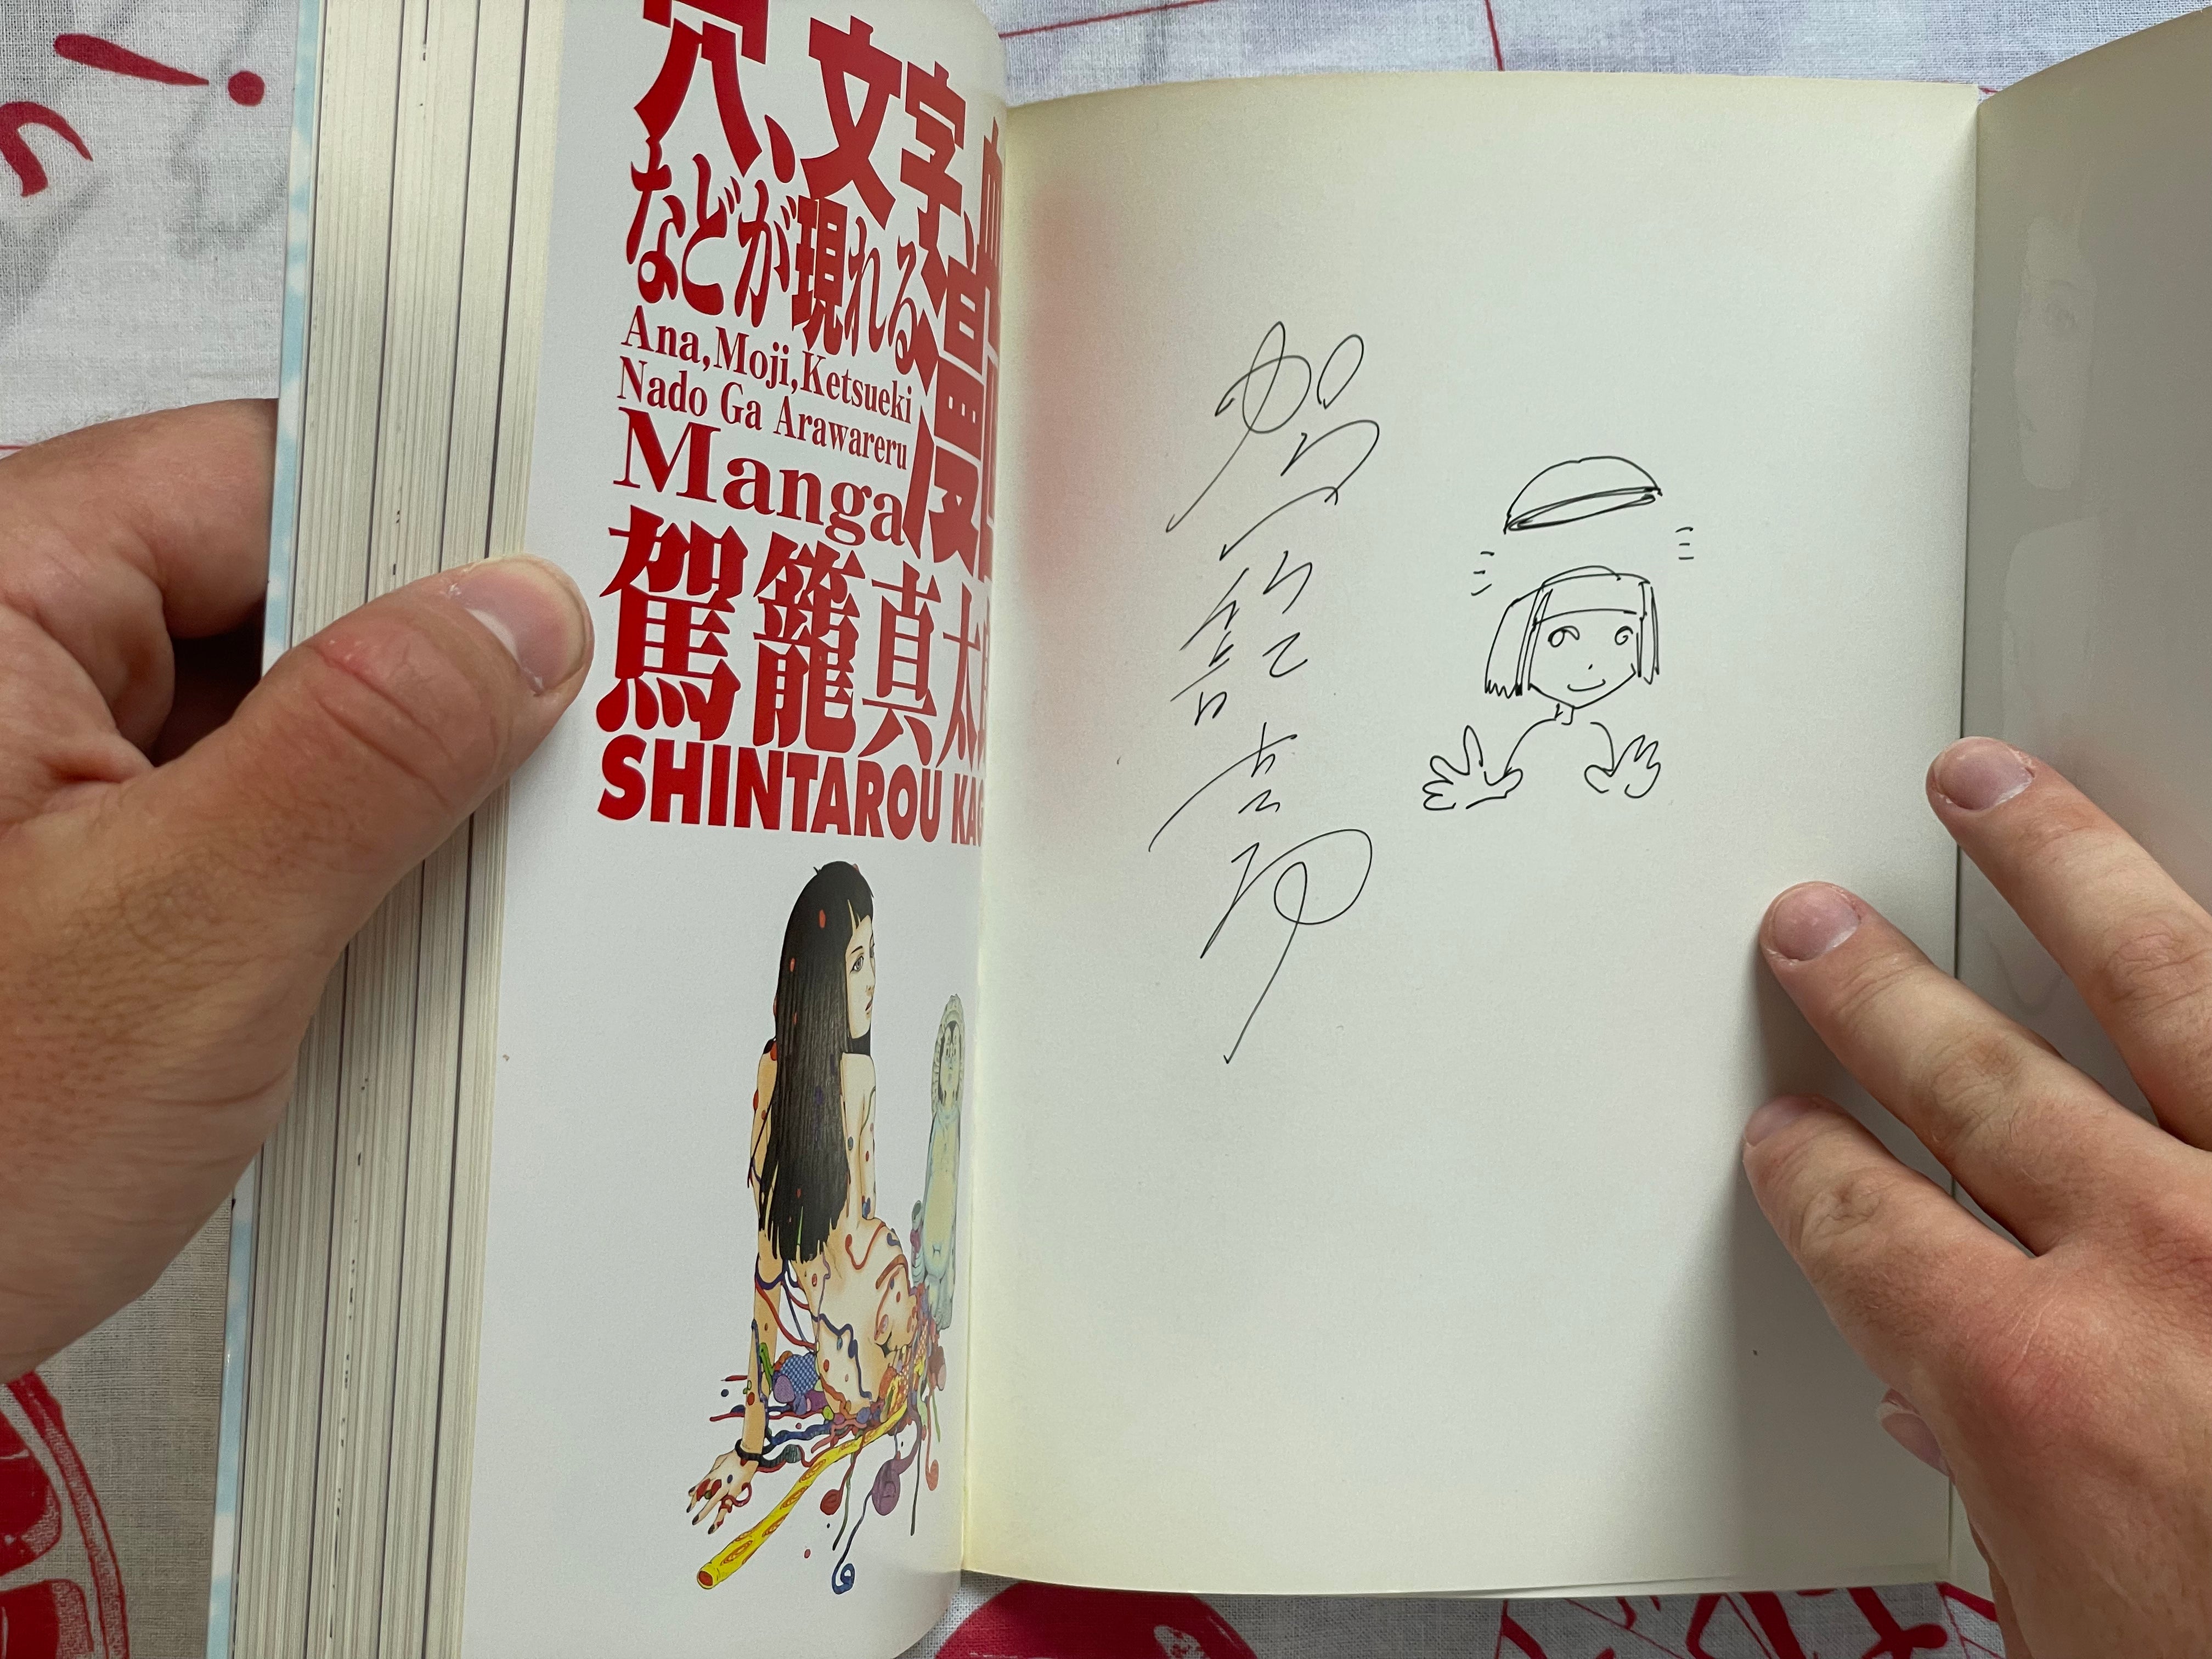 穴、文字、血
などが現れる
漫画
Ana,Moji,Ketsueki
Nado Ga Arawareru
Manga
駕籠真太郎
SHINTAROU KAG
駕籠真太郎